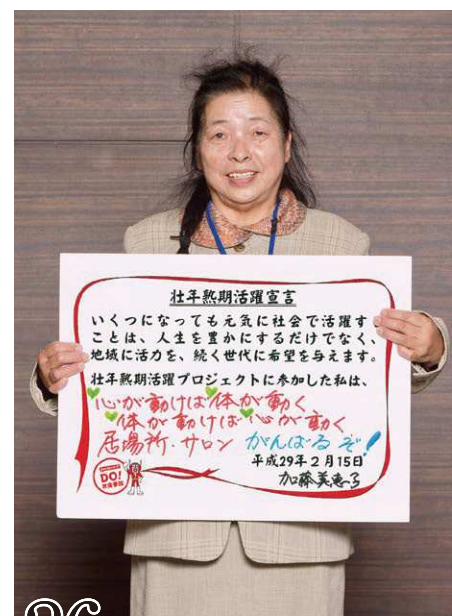 壮年熟期活躍宣言
いくつになっても元気に社会で活躍す
ことは、人生を豊かにするだけでなく、
地域に活力を、続く世代に希望を与えます。
壮年熟期活躍プロジェクトに参加した私は、
心が動けば体が動く
体が動けば心が動く
居場所・サロン がんばるぞ!
平成29年2月15日
加藤美恵子
DO!
26